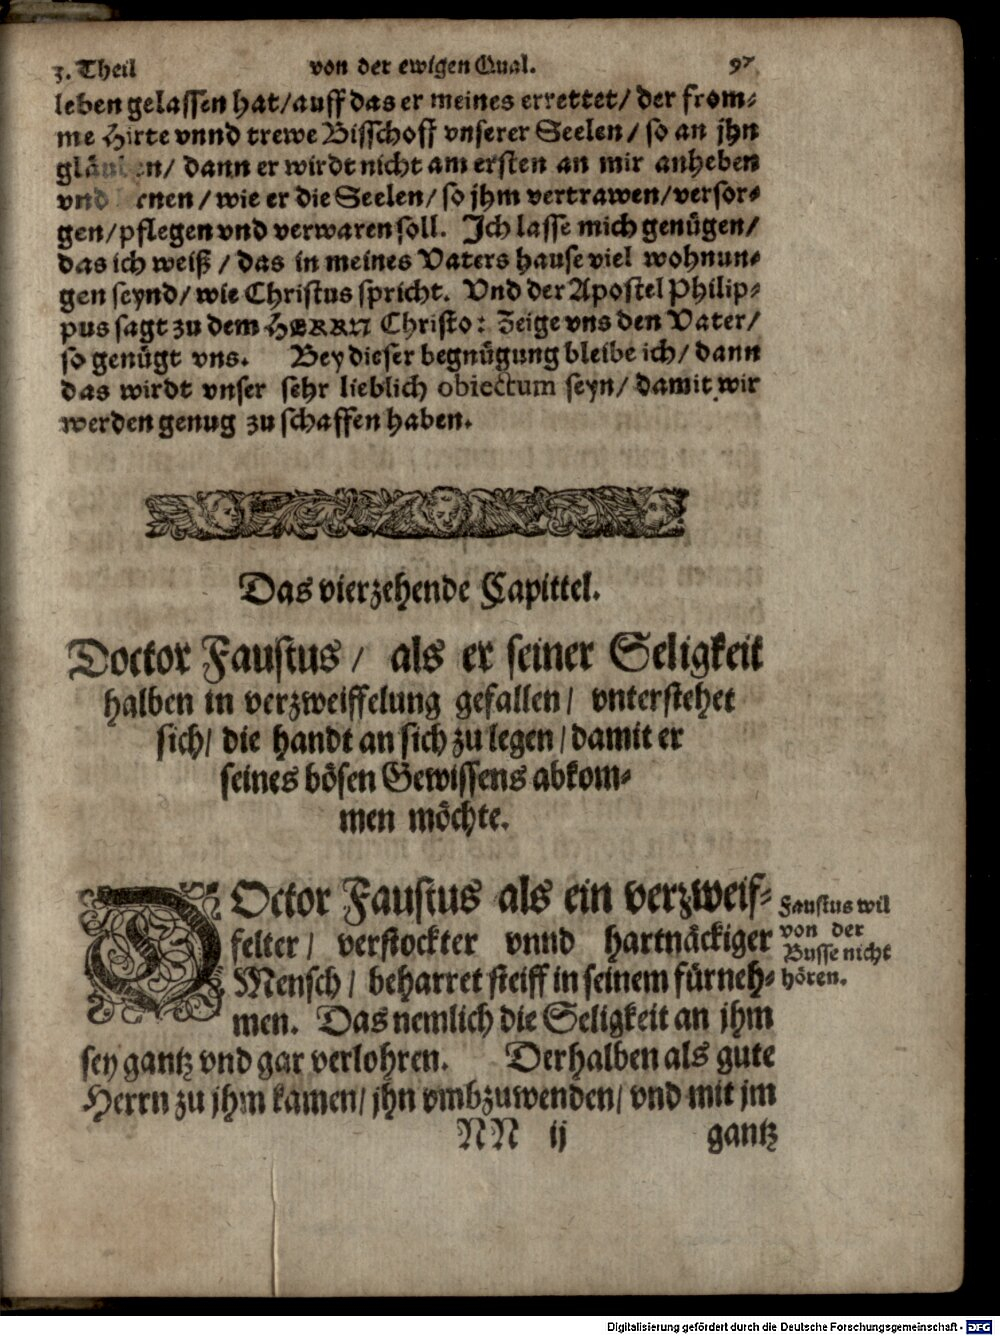 3. Theil von der ewigen Qual. 97
leben gelassen hat/auff das er meines errettet/ der from-
me Hirte vnnd trewe Bisschoff vnserer Seelen/ so an jhn
/ dann er wirdt nicht am ersten an mir anheben
vnd / wie er die Seelen/ so jhm vertrawen/versor-
gen/pflegen vnd verwaren soll. Ich lasse mich genügen/
das ich weiß / das in meines Vaters hause viel wohnun-
gen seynd/ wie Christus spricht. Vnd der Apostel Philip-
pus sagt zu dem HERRN Christo: Zeige vns den Vater/
so genügt vns. Bey dieser begnügung bleibe ich/ dann
das wirdt vnser sehr lieblich obiectum seyn/ damit wir
werden genug zu schaffen haben.
Das vierzehende Capittel.
Doctor Faustus/ als er seiner Seligkeit
halben in verzweiffelung gefallen/ vnterstehet
sich/ die handt an sich zu legen/ damit er
seines bösen Gewissens abkom-
men möchte.
DOctor Faustus als ein verzweif-
felter/ verstockter vnnd hartnäckiger
Mensch/ beharret steiff in seinem fürneh-
men. Das nemlich die Seligkeit an jhm
sey gantz vnd gar verlohren. Derhalben als gute
Herrn zu jhm kamen/ jhn vmbzuwenden/ vnd mit jm
NN ij gantz
Faustus wil
von der
Busse nicht
hören.
Digitalisierung gefördert durch die Deutsche Forschungsgemeinschaft - DFG